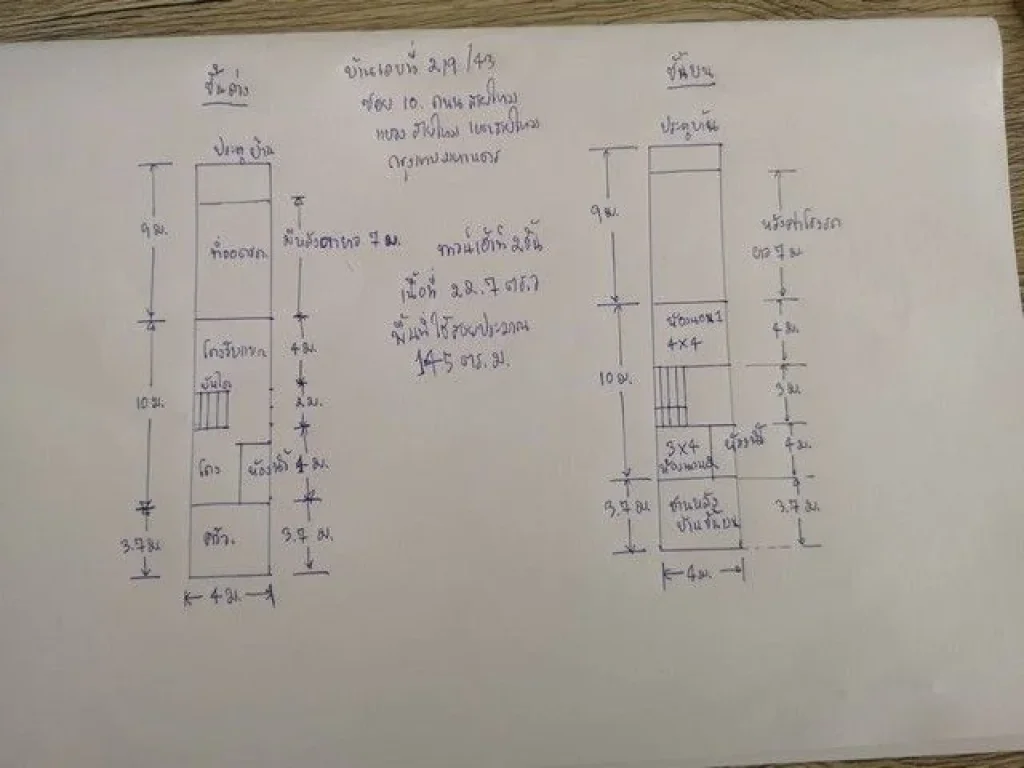 ชั้นล่าง
บ้านเลขที่ 219/43
ซอย 10. ถนน สายไหม
แขวง สายไหม เขตสายไหม
กรุงเทพมหานคร
ทาวน์เฮ้าท์ 2 ชั้น
เนื้อที่ 22.7 ตร.ว
พื้นที่ใช้สอยประมาณ
145 ตร.ม.
ประตูบ้าน
9 ม.
ที่จอดรถ
มีหลังคายาว 7 ม.
10 ม.
โถงรับแขก
4 ม.
บันได
2 ม.
โถง
ห้องน้ำ
4 ม.
3.7 ม.
ครัว.
3.7 ม.
4 ม.
ชั้นบน
ประตูบ้าน
9 ม.
หลังคาโรงรถ
ยาว 7 ม.
10 ม.
ห้องนอน 1
4x4
4 ม.
3 ม.
3x4
ห้องนอน 2
ห้องน้ำ
4 ม.
3.7 ม.
ชานหลัง
บ้านชั้นบน
3.7 ม.
4 ม.